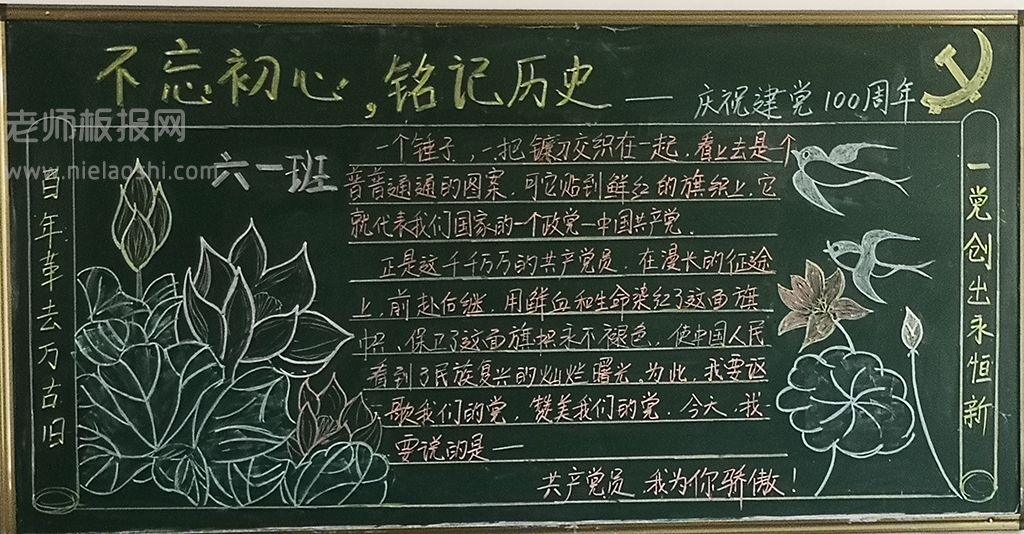 不忘初心，铭记历史 — 庆祝建党100周年
老师板报网
www.nielaoshi.com
六一班
百年革去万古旧
一个锤子，一把镰刀交织在一起，看上去是个
普普通通的图案，可它贴到鲜红的旗帜上，它
就代表我们国家的一个政党-中国共产党.
正是这千千万万的共产党员，在漫长的征途
上，前赴后继，用鲜血和生命染红了这面旗
帜、保卫了这面旗帜永不褪色、使中国人民
看到了民族复兴的灿烂曙光，为此，我要讴
歌我们的党，赞美我们的党.今天，我
要说的是—
共产党员 我为你骄傲！
一党创出永恒新